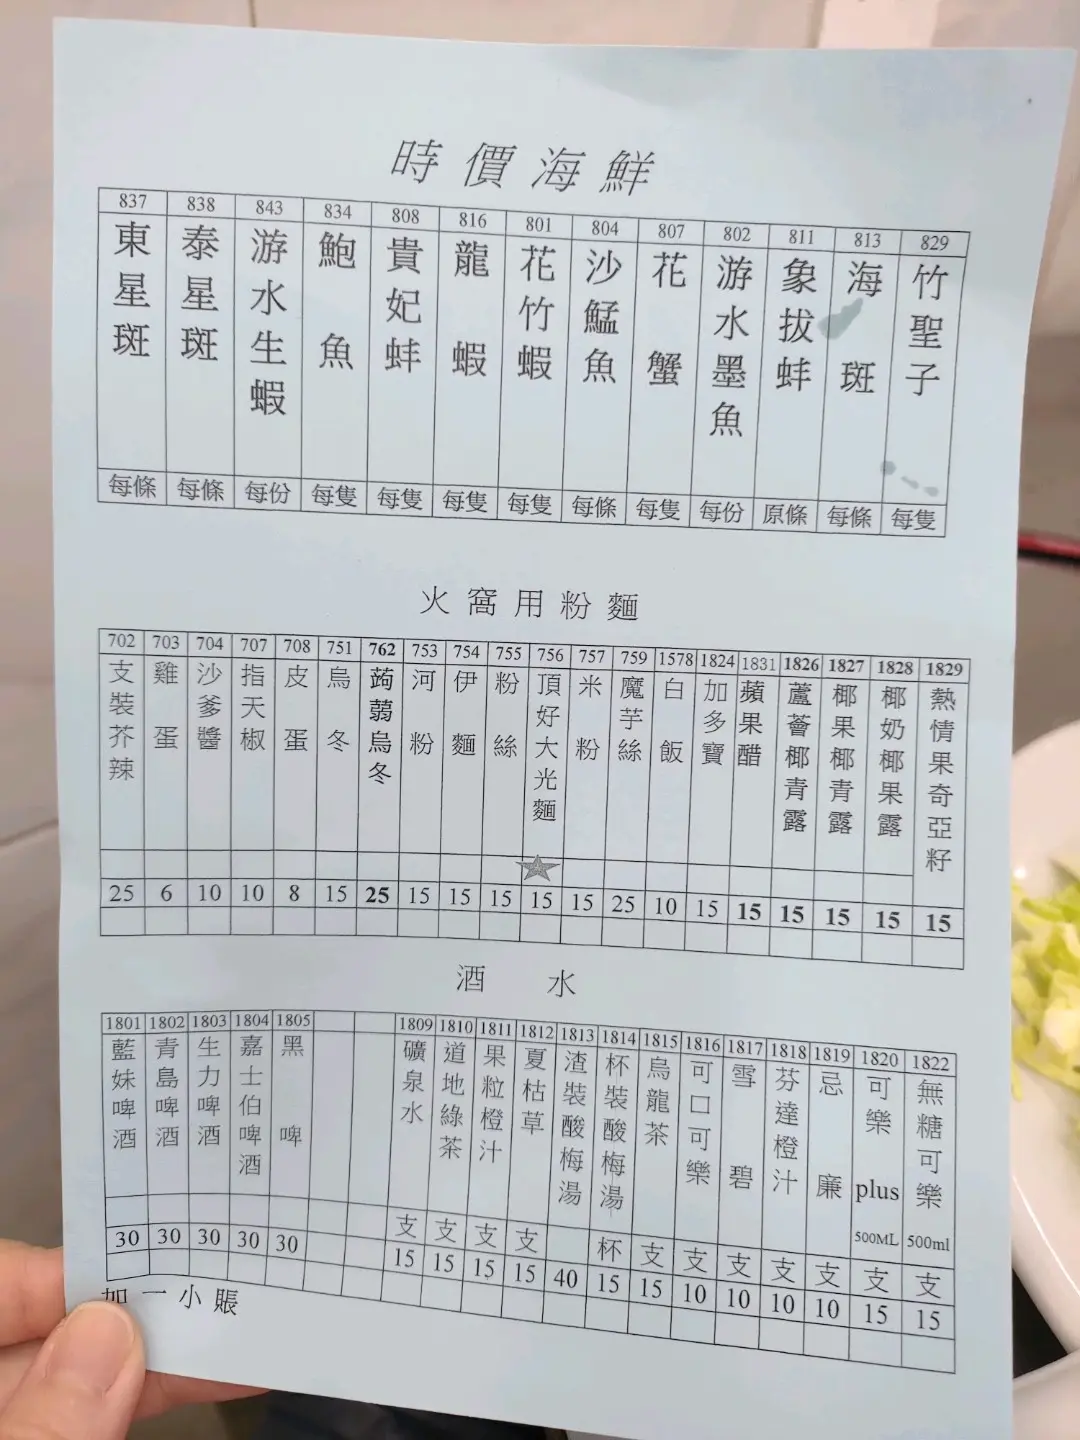 時價海鮮
837 838 843 834 808 816 801 804 807 802 811 813 829
東星斑 泰星斑 游水生蝦 鮑魚 貴妃蚌 龍蝦 花竹蝦 沙鯭魚 花蟹 游水墨魚 象拔蚌 海斑 竹聖子
每條 每條 每份 每隻 每隻 每隻 每隻 每條 每隻 每份 原條 每條 每隻
火窩用粉麵
702 703 704 707 708 751 762 753 754 755 756 757 759 1578 1824 1831 1826 1827 1828 1829
支裝芥辣 雞蛋 沙爹醬 指天椒 皮蛋 烏冬 蒟蒻烏冬 河粉 伊麵 粉絲 頂好大光麵 米粉 魔芋絲 白飯 加多寶 蘋果醋 蘆薈椰青露 椰果椰青露 椰奶椰果露 熱情果奇亞籽
25 6 10 10 8 15 25 15 15 15 15 15 25 10 15 15 15 15 15 15
酒水
1801 1802 1803 1804 1805 1809 1810 1811 1812 1813 1814 1815 1816 1817 1818 1819 1820 1822
藍妹啤酒 青島啤酒 生力啤酒 嘉士伯啤酒 黑啤 礦泉水 道地綠茶 果粒橙汁 夏枯草 渣裝酸梅湯 杯裝酸梅湯 烏龍茶 可口可樂 雪碧 芬達橙汁 忌廉 可樂plus 500ML 無糖可樂 500ml
支 支 支 支 杯 支 支 支 支 支 支 支
30 30 30 30 30 15 15 15 15 40 15 15 10 10 10 10 15 15
加一小賬